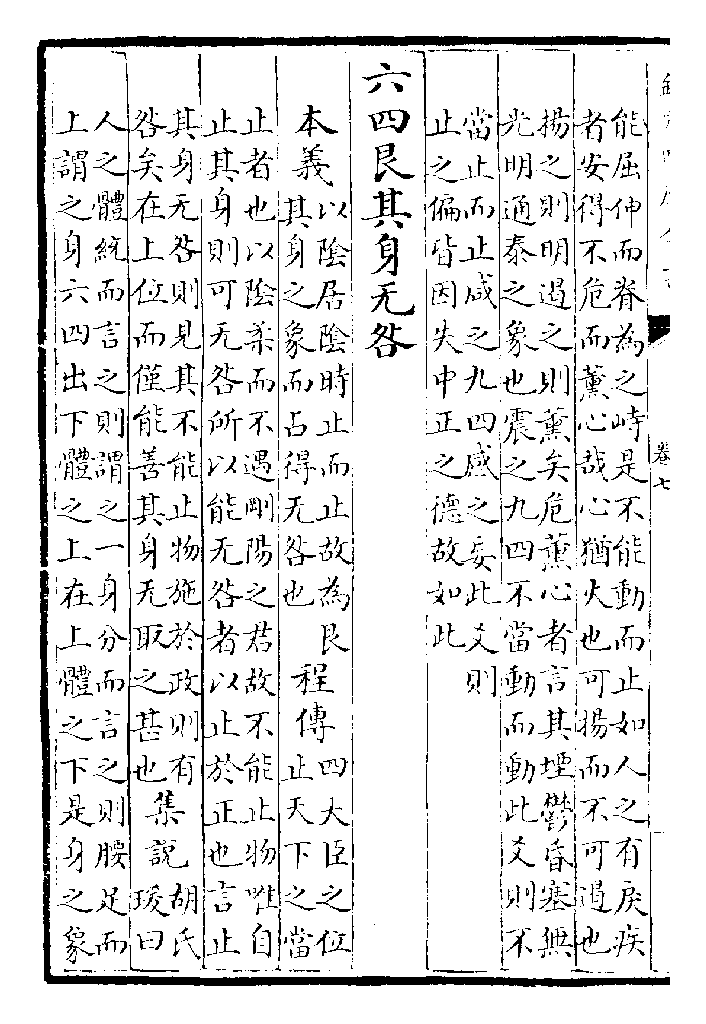 卷七
能屈伸而脊為之峙是不能動而止如人之有戾疾
者安得不危而薰心哉心猶火也可揚而不可遏也
揚之則明遏之則薰矣危薰心者言其堙鬱昏塞無
光明通泰之象也震之九四不當動而動此爻則不
當止而止咸之九四感之妄此爻則
止之偏皆因失中正之德故如此
六四艮其身无咎
本義
以陰居陰時止而止故為艮
其身之象而占得无咎也
程傳
四大臣之位
止天下之當
止者也以陰柔而不遇剛陽之君故不能止物唯自
止其身則可无咎所以能无咎者以止於正也言止
其身无咎則見其不能止物施於政則有
咎矣在上位而僅能善其身无取之甚也
集說
胡氏
瑗曰
人之體統而言之則謂之一身分而言之則腰足而
上謂之身六四出下體之上在上體之下是身之象